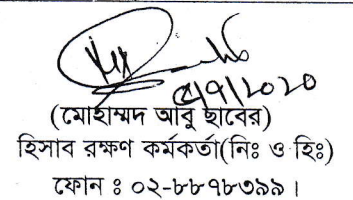 ৫/৭/২০২০
(মোহাম্মদ আবু ছাবের)
হিসাব রক্ষণ কর্মকর্তা(নিঃ ও হিঃ)
ফোন ঃ ০২-৮৮৭৮৩৯৯ ।